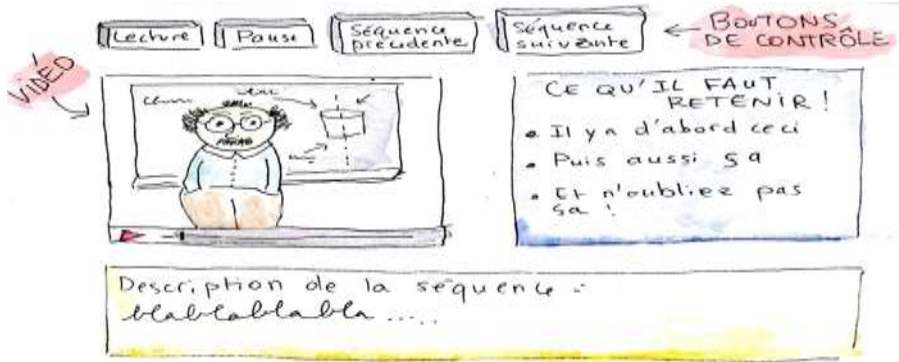 Lecture
Pause
Séquence
précedente
Séquence
suivante
← BOUTONS
DE CONTRÔLE
VIDÉO
CE QU'IL FAUT
RETENIR !
• Il y a d'abord ceci
• Puis aussi sa
• Et n'oubliez pas
sa !
Description de la séquence :
blablablabla .....